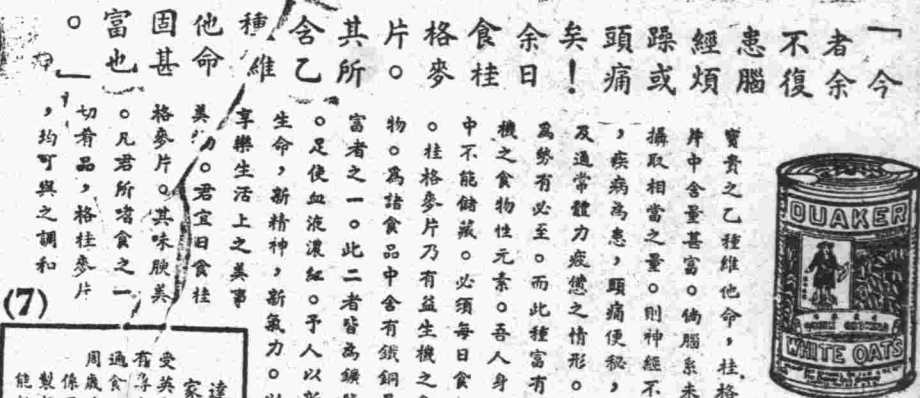 「今
者余
不復
患腦
經煩
躁或
頭痛
矣！
余日
食桂
格麥
片。
其所
含乙
種維
他命
固甚
富也
。」
寶貴之乙種維他命，桂格
片中含量甚富。倘腦系未
攝取相當之量。則神經不
，疾病為患，頭痛便秘，
及通常體力疲憊之情形。
為勢有必至。而此種富有
機之食物性元素。吾人身
中不能儲藏。必須每日食
。桂格麥片乃有益生機之食
物。為諸食品中含有鐵銅
富者之一。此二者皆為鑛
。足使血液濃紅。予人以新
生命，新精神，新氣力。以
享樂生活上之美事
美。君宜日食桂
格麥片。其味腴美
。凡君所嗜食之一
切肴品，格桂麥片
，均可與之調和
(7)
達
家
受英
有專
通食
周歲
係
製
能
QUAKER
WHITE OATS